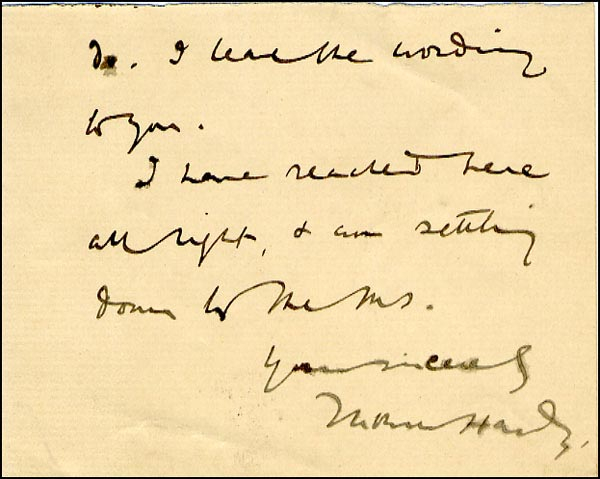 do. I leave the wording
to you.
I have reached here
all right, & am settling
down to the MS.
Yours sincerely
Thomas Hardy.